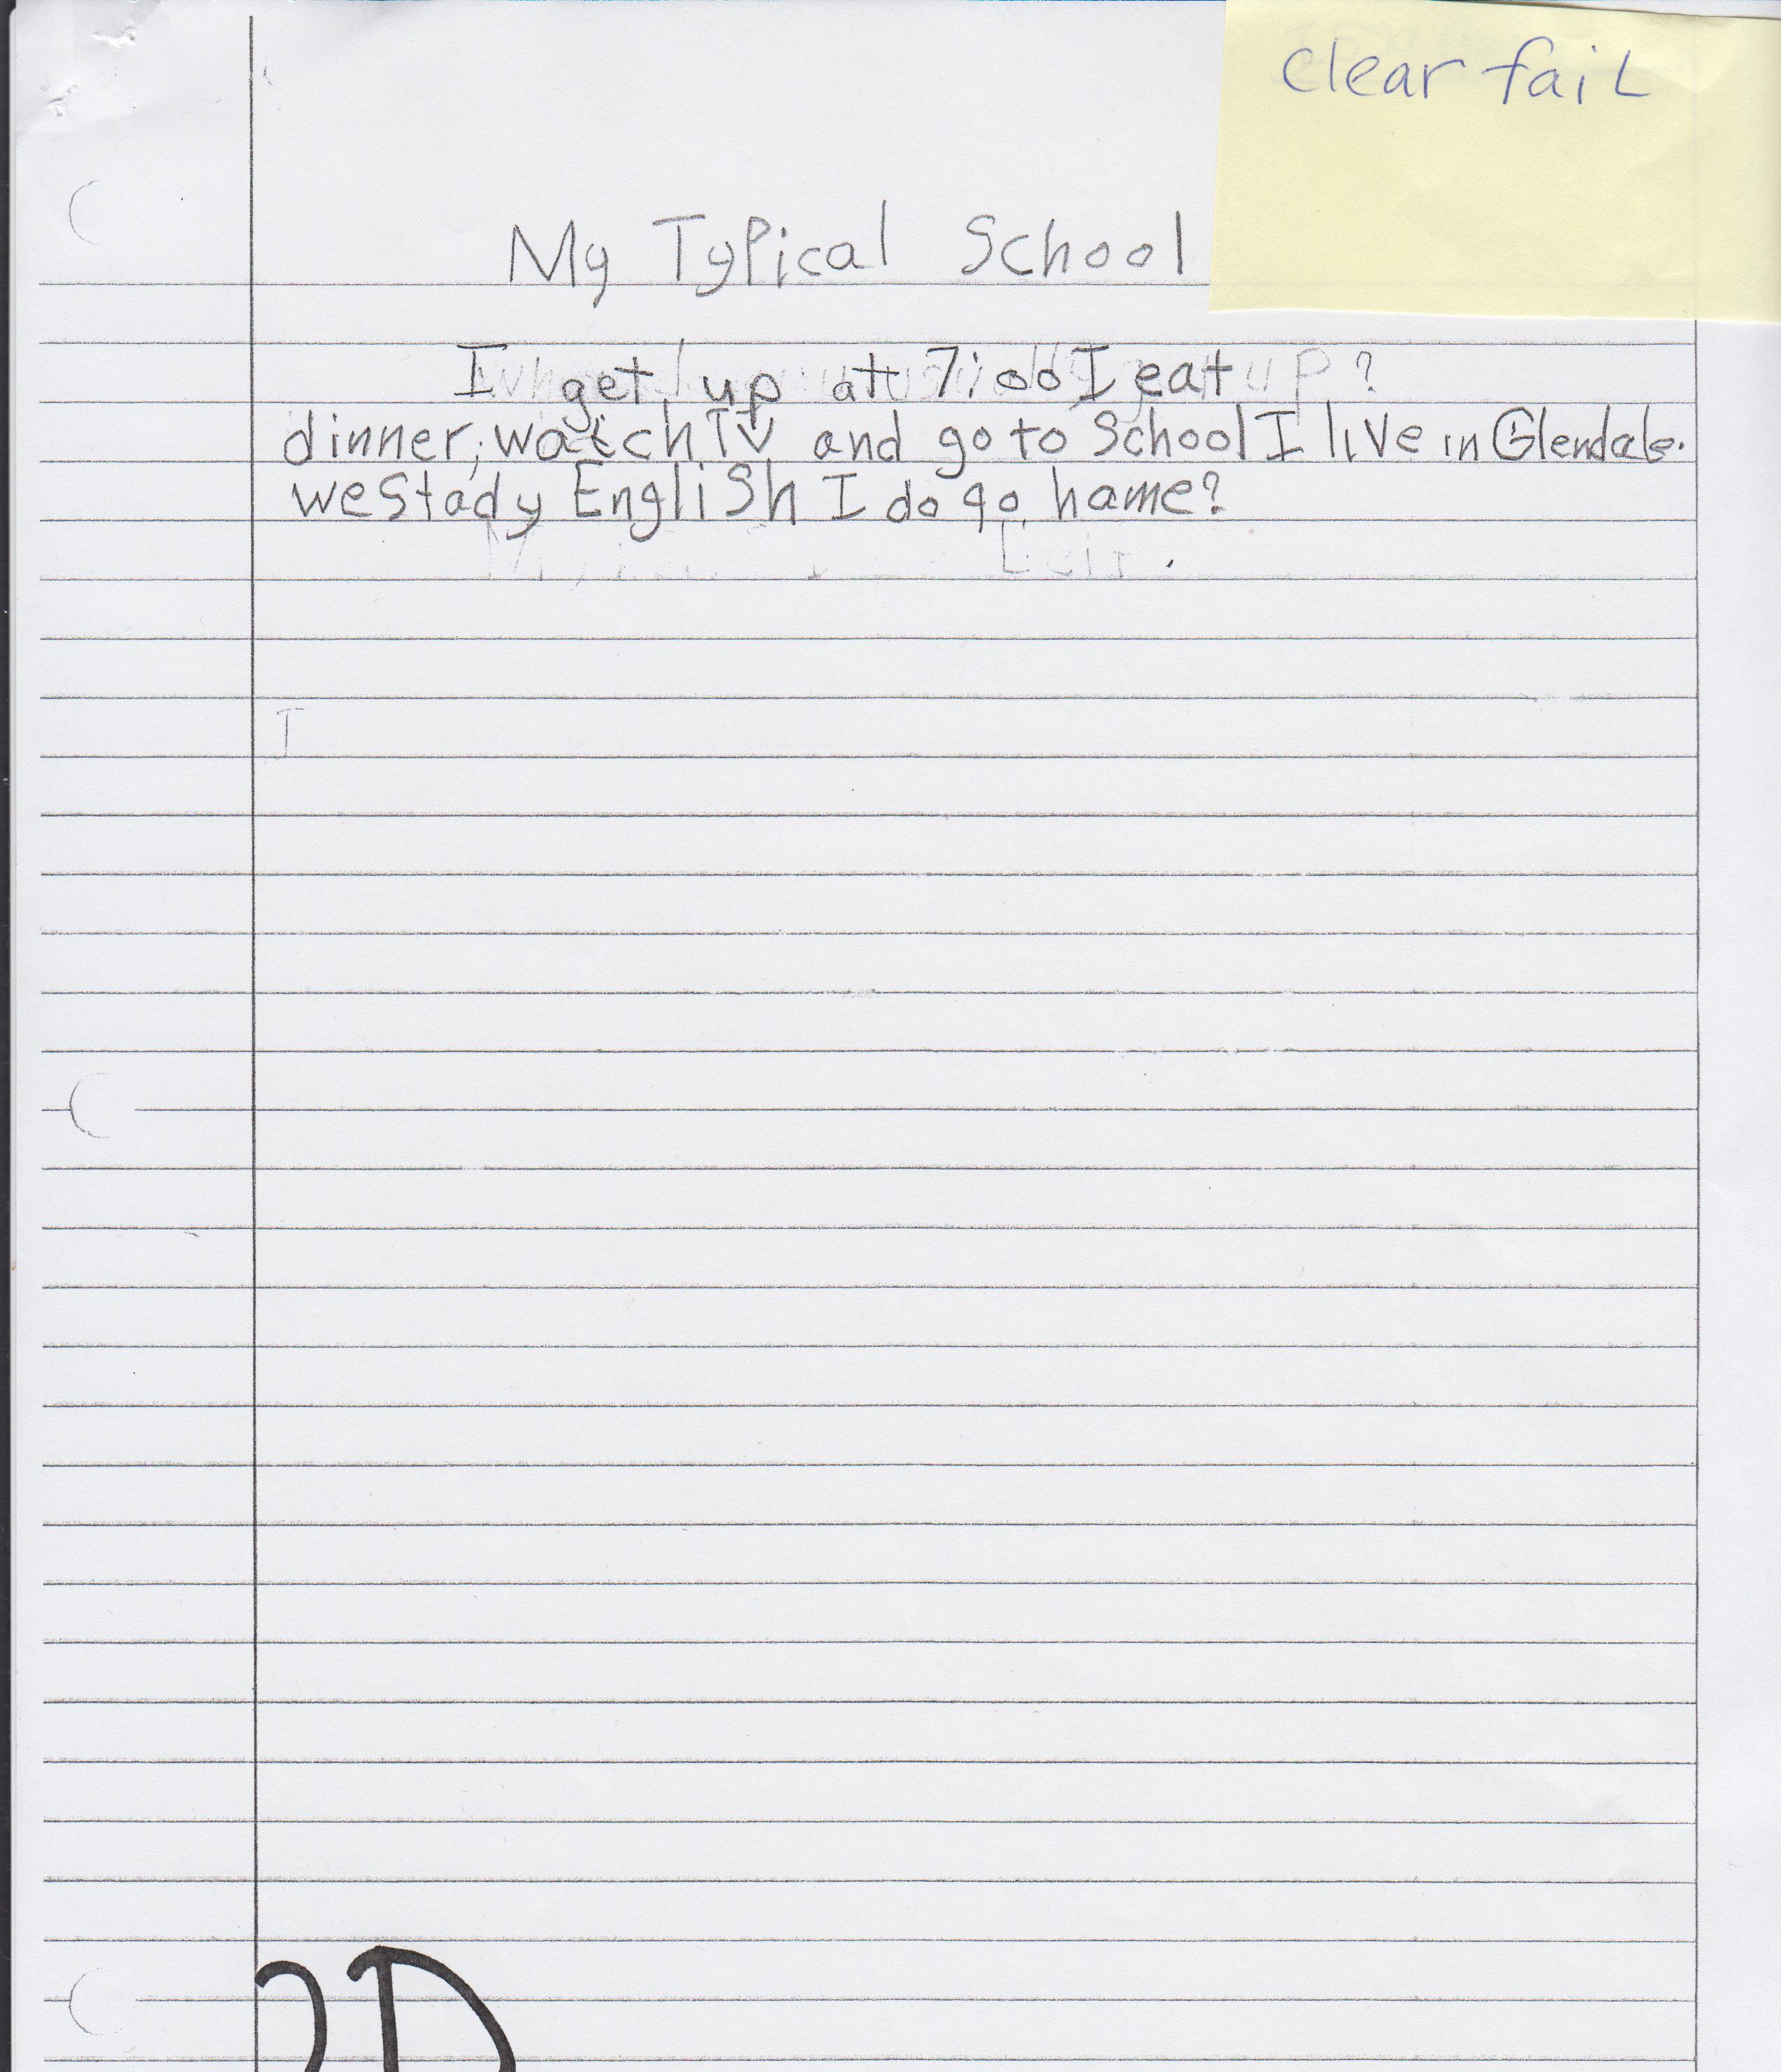 clear fail
My Typical School
I get up at 7:00 I eat up ?
dinner, watch TV and go to School I live in Glendale.
we stady English I do go hame?
I
2D